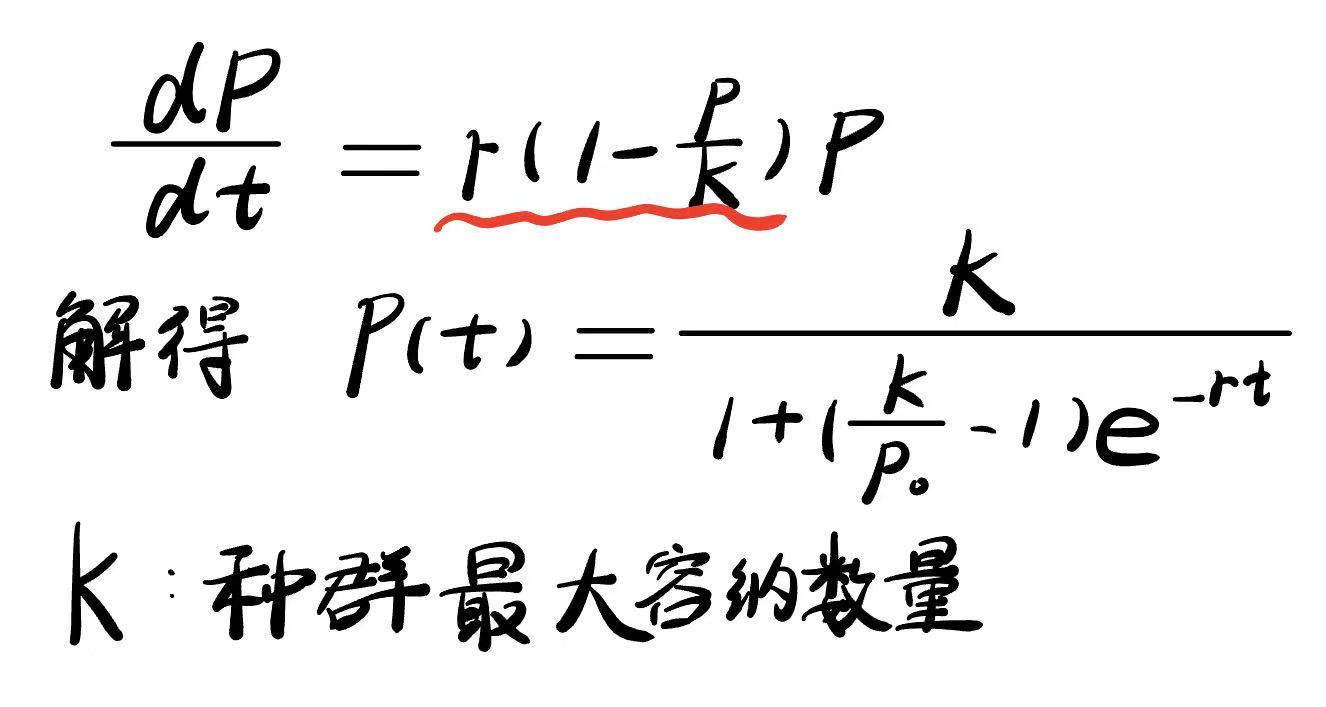 dP/dt = r(1-P/k)P
解得 P(t) = k/(1+(k/P₀-1)e^(-rt))
k:种群最大容纳数量